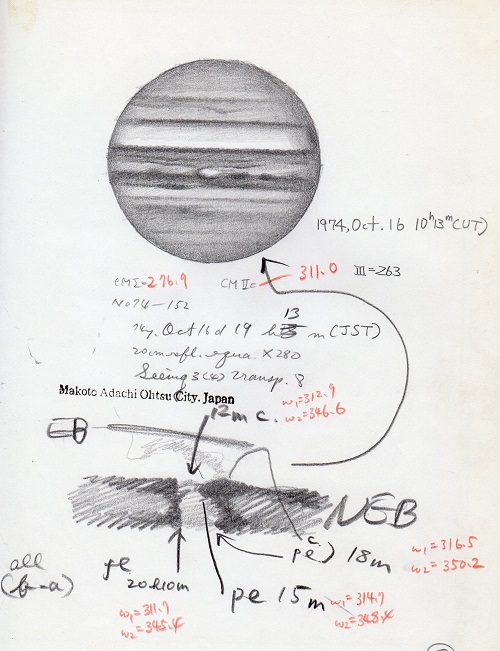 1974, Oct. 16 10h13m (UT)
CMI=276.9 CMII= 311.0 III=263
No 74-152
74y. Oct 16d 19h 13m (JST)
20cm refl. equa. ×280
Seeing 3(4) Transp. 8
Makoto Adachi Ohtsu City. Japan
12m c. ω1=312.9
ω2=346.6
EB
NEB
c.
pe) 18m ω1=316.5
ω2=350.2
all
(b-a)
20h10m
pe 15m ω1=314.7
ω2=348.4
ω1=311.7
ω2=345.4